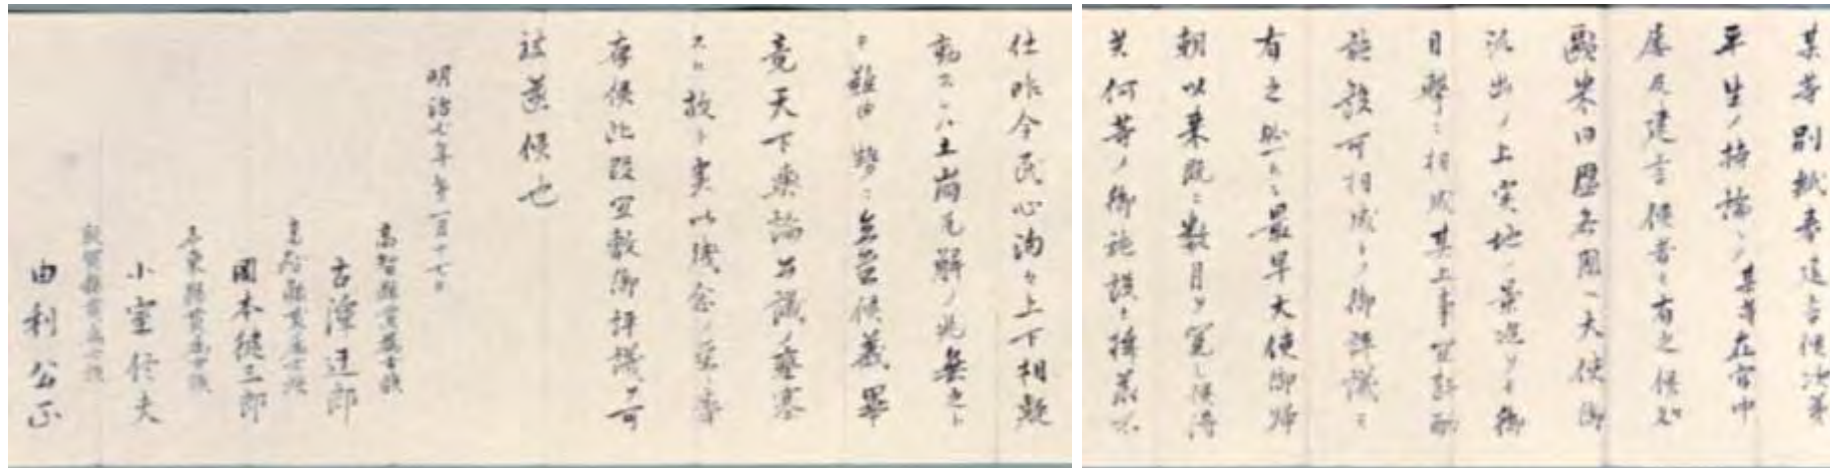 某等別紙奉建言候次第
平生ノ持論ニシテ某等在官中
屡及建言候者モ有之候処
歐米同盟各国ヘ大使御
派出ノ上実地ノ景況ヲモ御
目撃ニ相成其上事宜斟酌
施設可相成トノ御評議モ
有之然ルニ最早大使御帰
朝以来既ニ数月ヲ閲シ候得
共何等ノ御施設モ拝承不
仕昨今民心洶々上下相疑
動スレハ土崩瓦解ノ兆無之ト
モ難申勢ニ立至候義畢
竟天下輿論公議ノ壅塞
スル故ト実以残念ノ至ニ奉
存候此段宜敷御評議可
被遂候也
明治七年一月十七日
高智縣貫属士族
古澤迂郎
高智縣貫属士族
岡本健三郎
名東縣貫属士族
小室信夫
敦賀縣貫属士族
由利公正